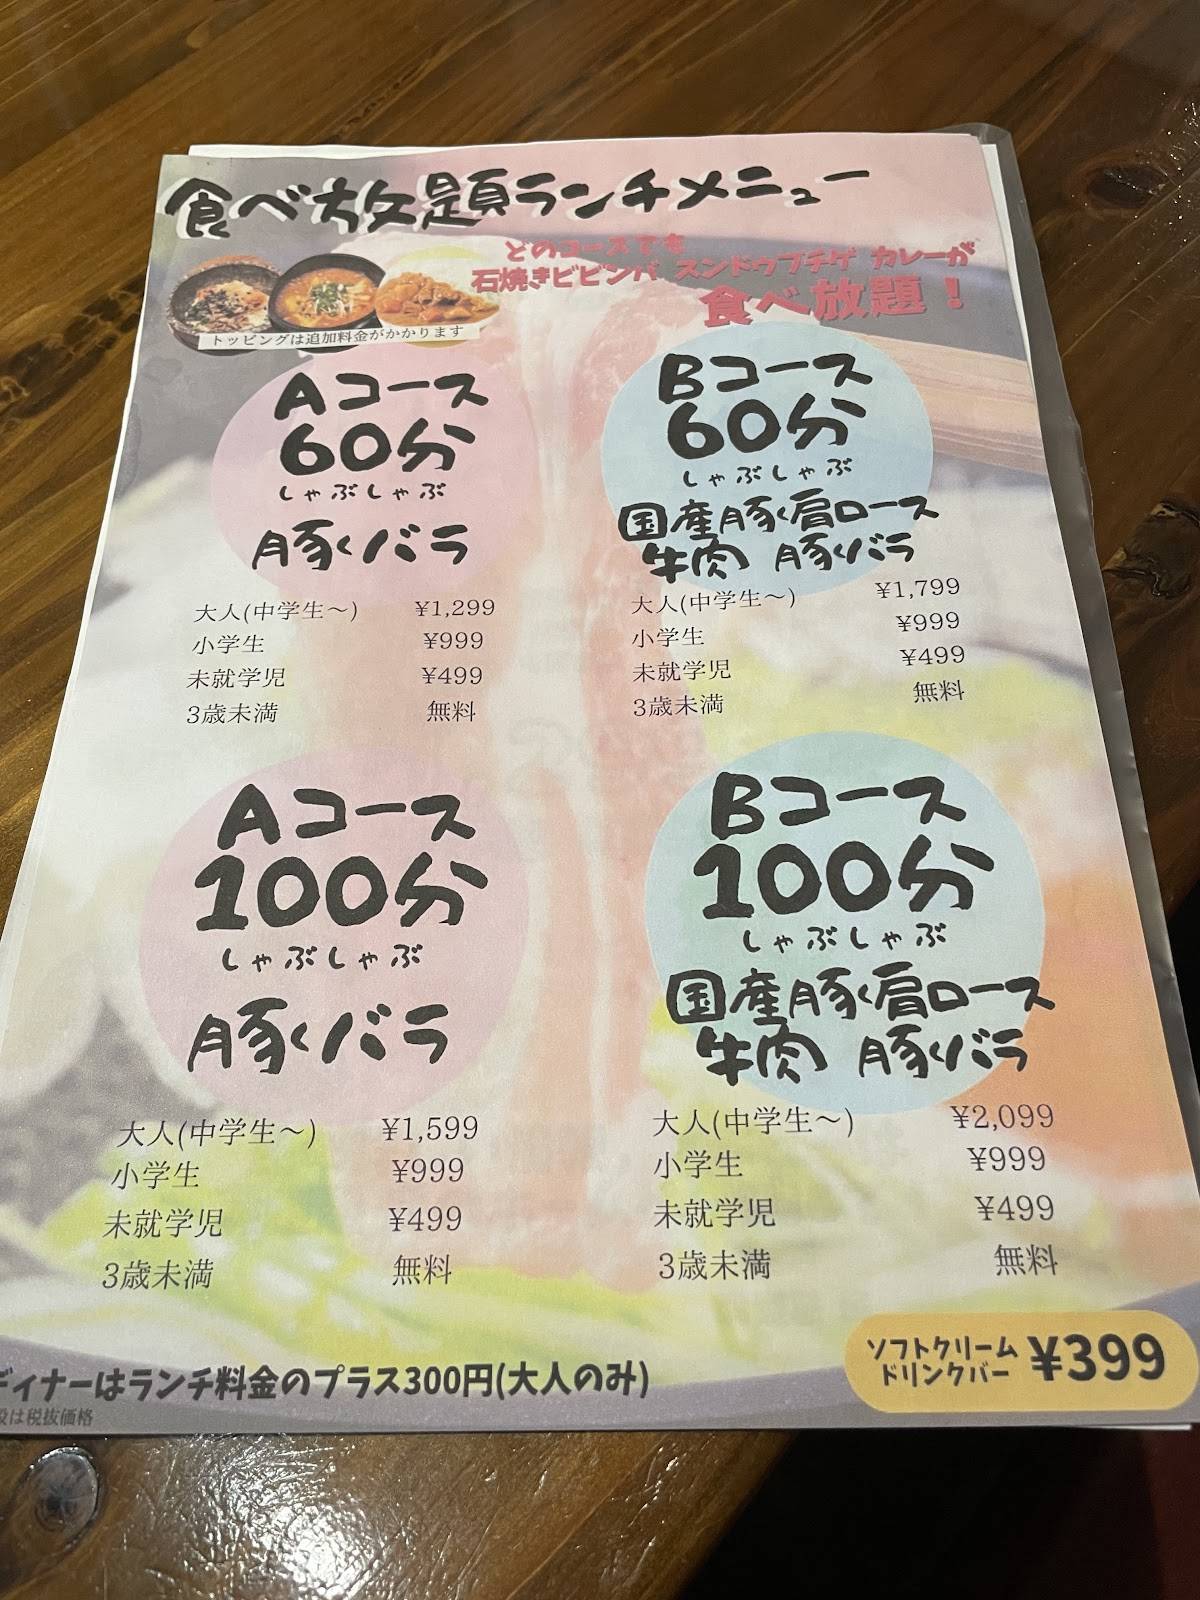 食べ放題ランチメニュー
どのコースでも
石焼きビビンバ スンドゥブチゲ カレーが
食べ放題！
トッピングは追加料金がかかります
Aコース
60分
しゃぶしゃぶ
豚バラ
大人(中学生～) ¥1,299
小学生 ¥999
未就学児 ¥499
3歳未満 無料
Bコース
60分
しゃぶしゃぶ
国産豚肩ロース
牛肉 豚バラ
大人(中学生～) ¥1,799
小学生 ¥999
未就学児 ¥499
3歳未満 無料
Aコース
100分
しゃぶしゃぶ
豚バラ
大人(中学生～) ¥1,599
小学生 ¥999
未就学児 ¥499
3歳未満 無料
Bコース
100分
しゃぶしゃぶ
国産豚肩ロース
牛肉 豚バラ
大人(中学生～) ¥2,099
小学生 ¥999
未就学児 ¥499
3歳未満 無料
ディナーはランチ料金のプラス300円(大人のみ)
は税抜価格
ソフトクリーム
ドリンクバー ¥399